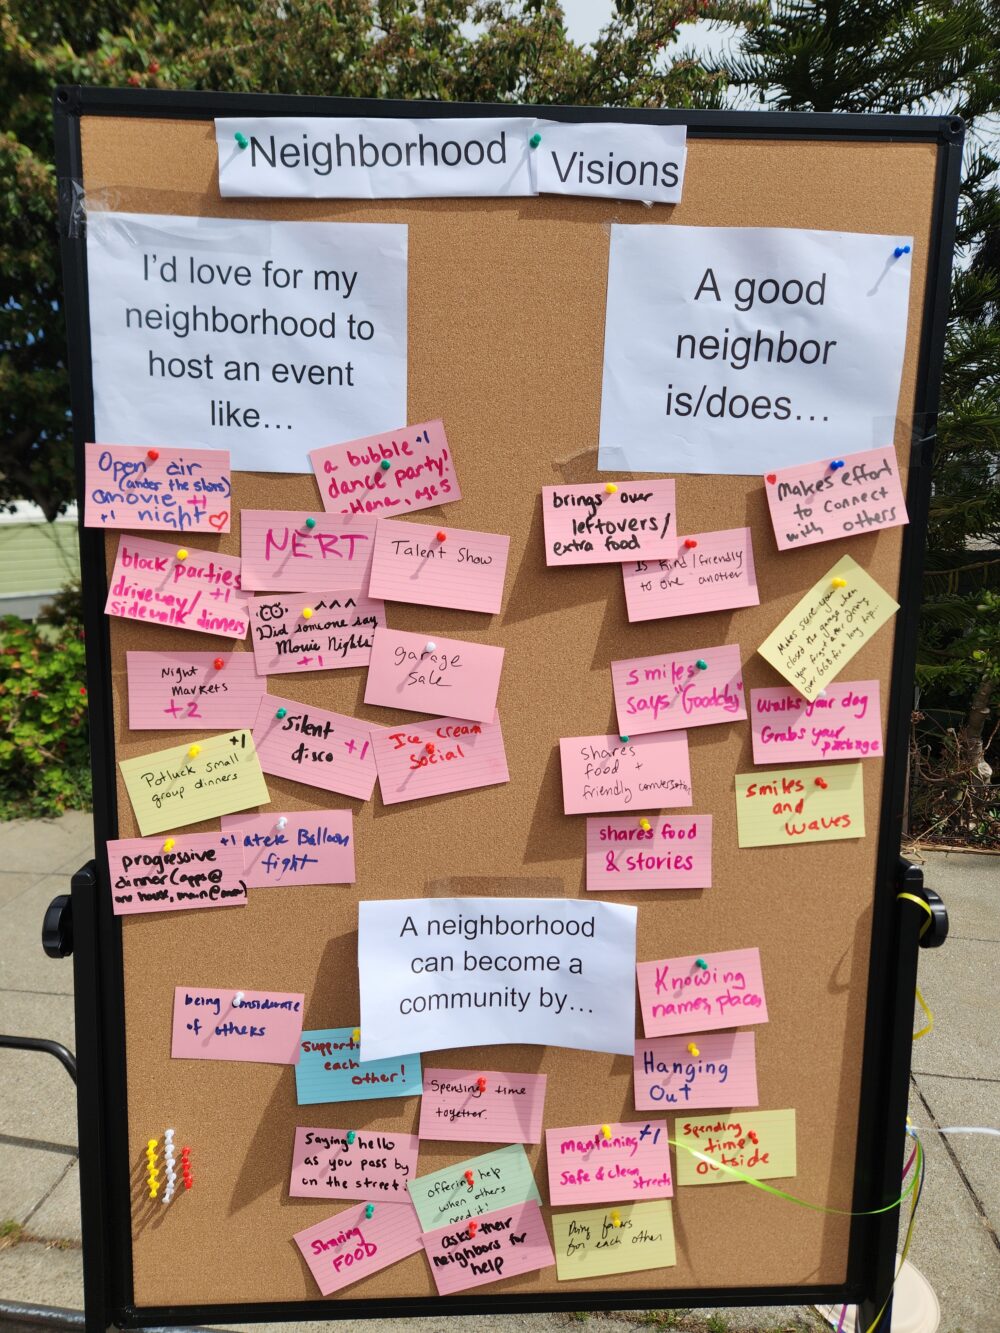 Neighborhood Visions
I'd love for my
neighborhood to
host an event
like...
Open air
(under the stars)
movie +1
+1 night
a bubble +1
dance party!
-Hana, age 5
NERT
Talent Show
block parties
driveway/ +1
sidewalk dinners
Did someone say
Movie Nights?
+1
garage
Sale
Night
Markets
+2
Silent
disco +1
Ice cream
Social
+1
Potluck small
group dinners
progressive +1
dinner (apps@
one house, main@
Balloon
fight
A good
neighbor
is/does...
brings over
leftovers/
extra food
Makes effort
to connect
with others
Is kind/friendly
to one another
Makes sure you
closed the garage when
you forgot after driving
over GGB for a long trip...
smiles
says "Goodday"
Walks your dog
Grabs your
package
shares
food +
friendly conversation
smiles
and
waves
shares food
& stories
A neighborhood
can become a
community by...
Knowing
names, places
being considerate
of others
each
other!
Hanging
Out
Spending time
together.
Saying hello
as you pass by
on the street!
offering help
when others
need it!
mantaining +1
Safe & clean
streets
Spending
time
outside
Sharing
FOOD
asks their
neighbors for
help
Doing favors
for each other